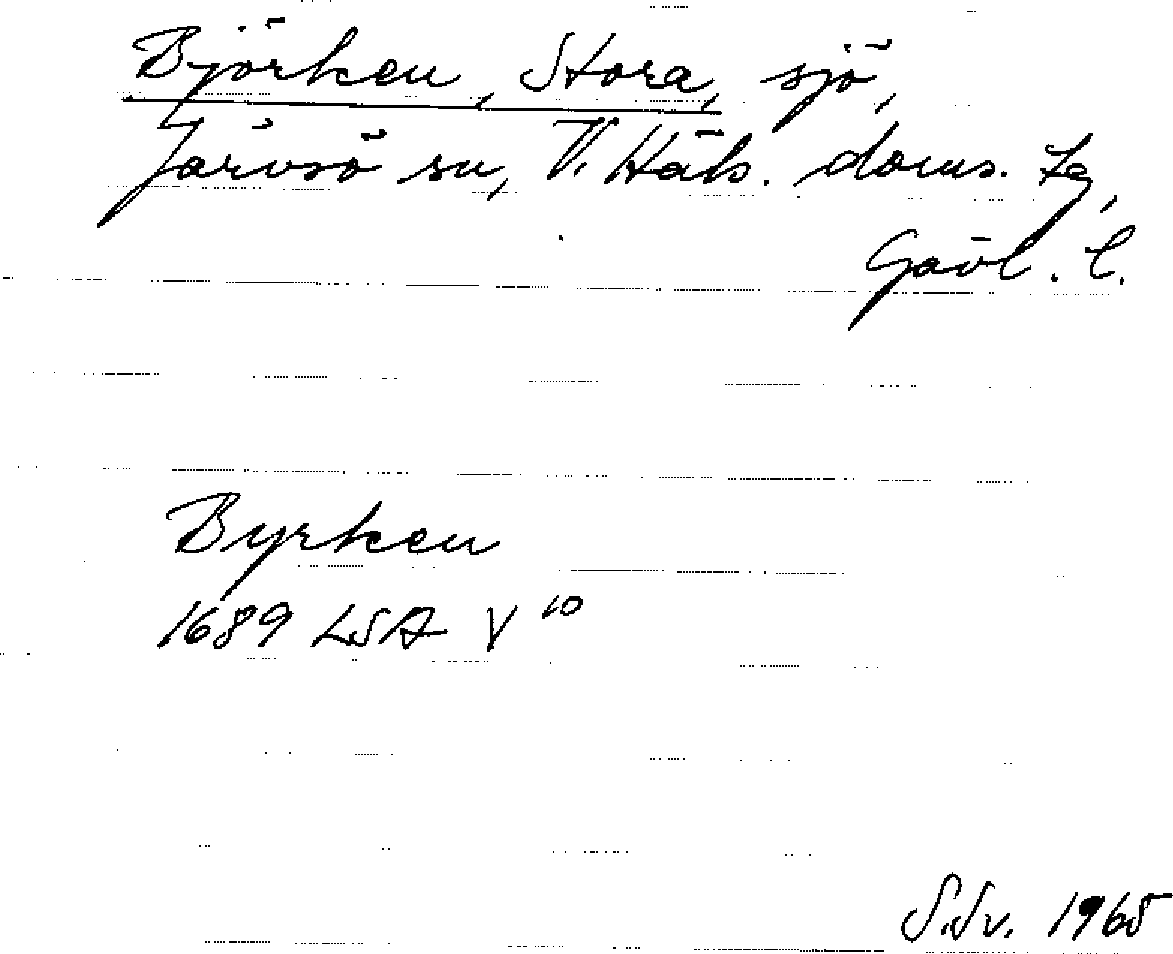 Björken, Stora, sjö,
Järvsö sn, V. Häls. doms. tg,
Gävl. l.
Byrken
1689 LSA V 10
S.Sv. 1965